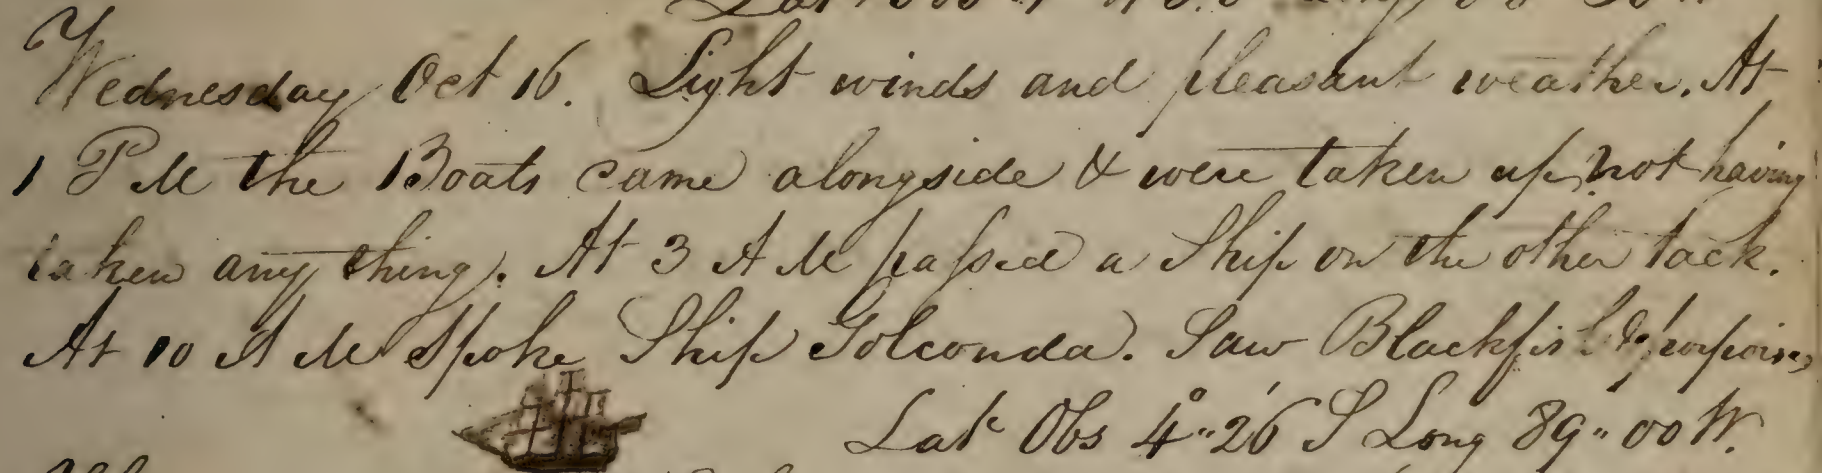 Wednesday Oct 16. Light winds and pleasant weather. At
1 P M the Boats came alongside & were taken up, not having
taken any thing. At 3 A M passed a Ship on the other tack.
At 10 A M Spoke Ship Golconda. Saw Blackfish & porpoises
Lat Obs 4°"26' S Long 89"00 W.